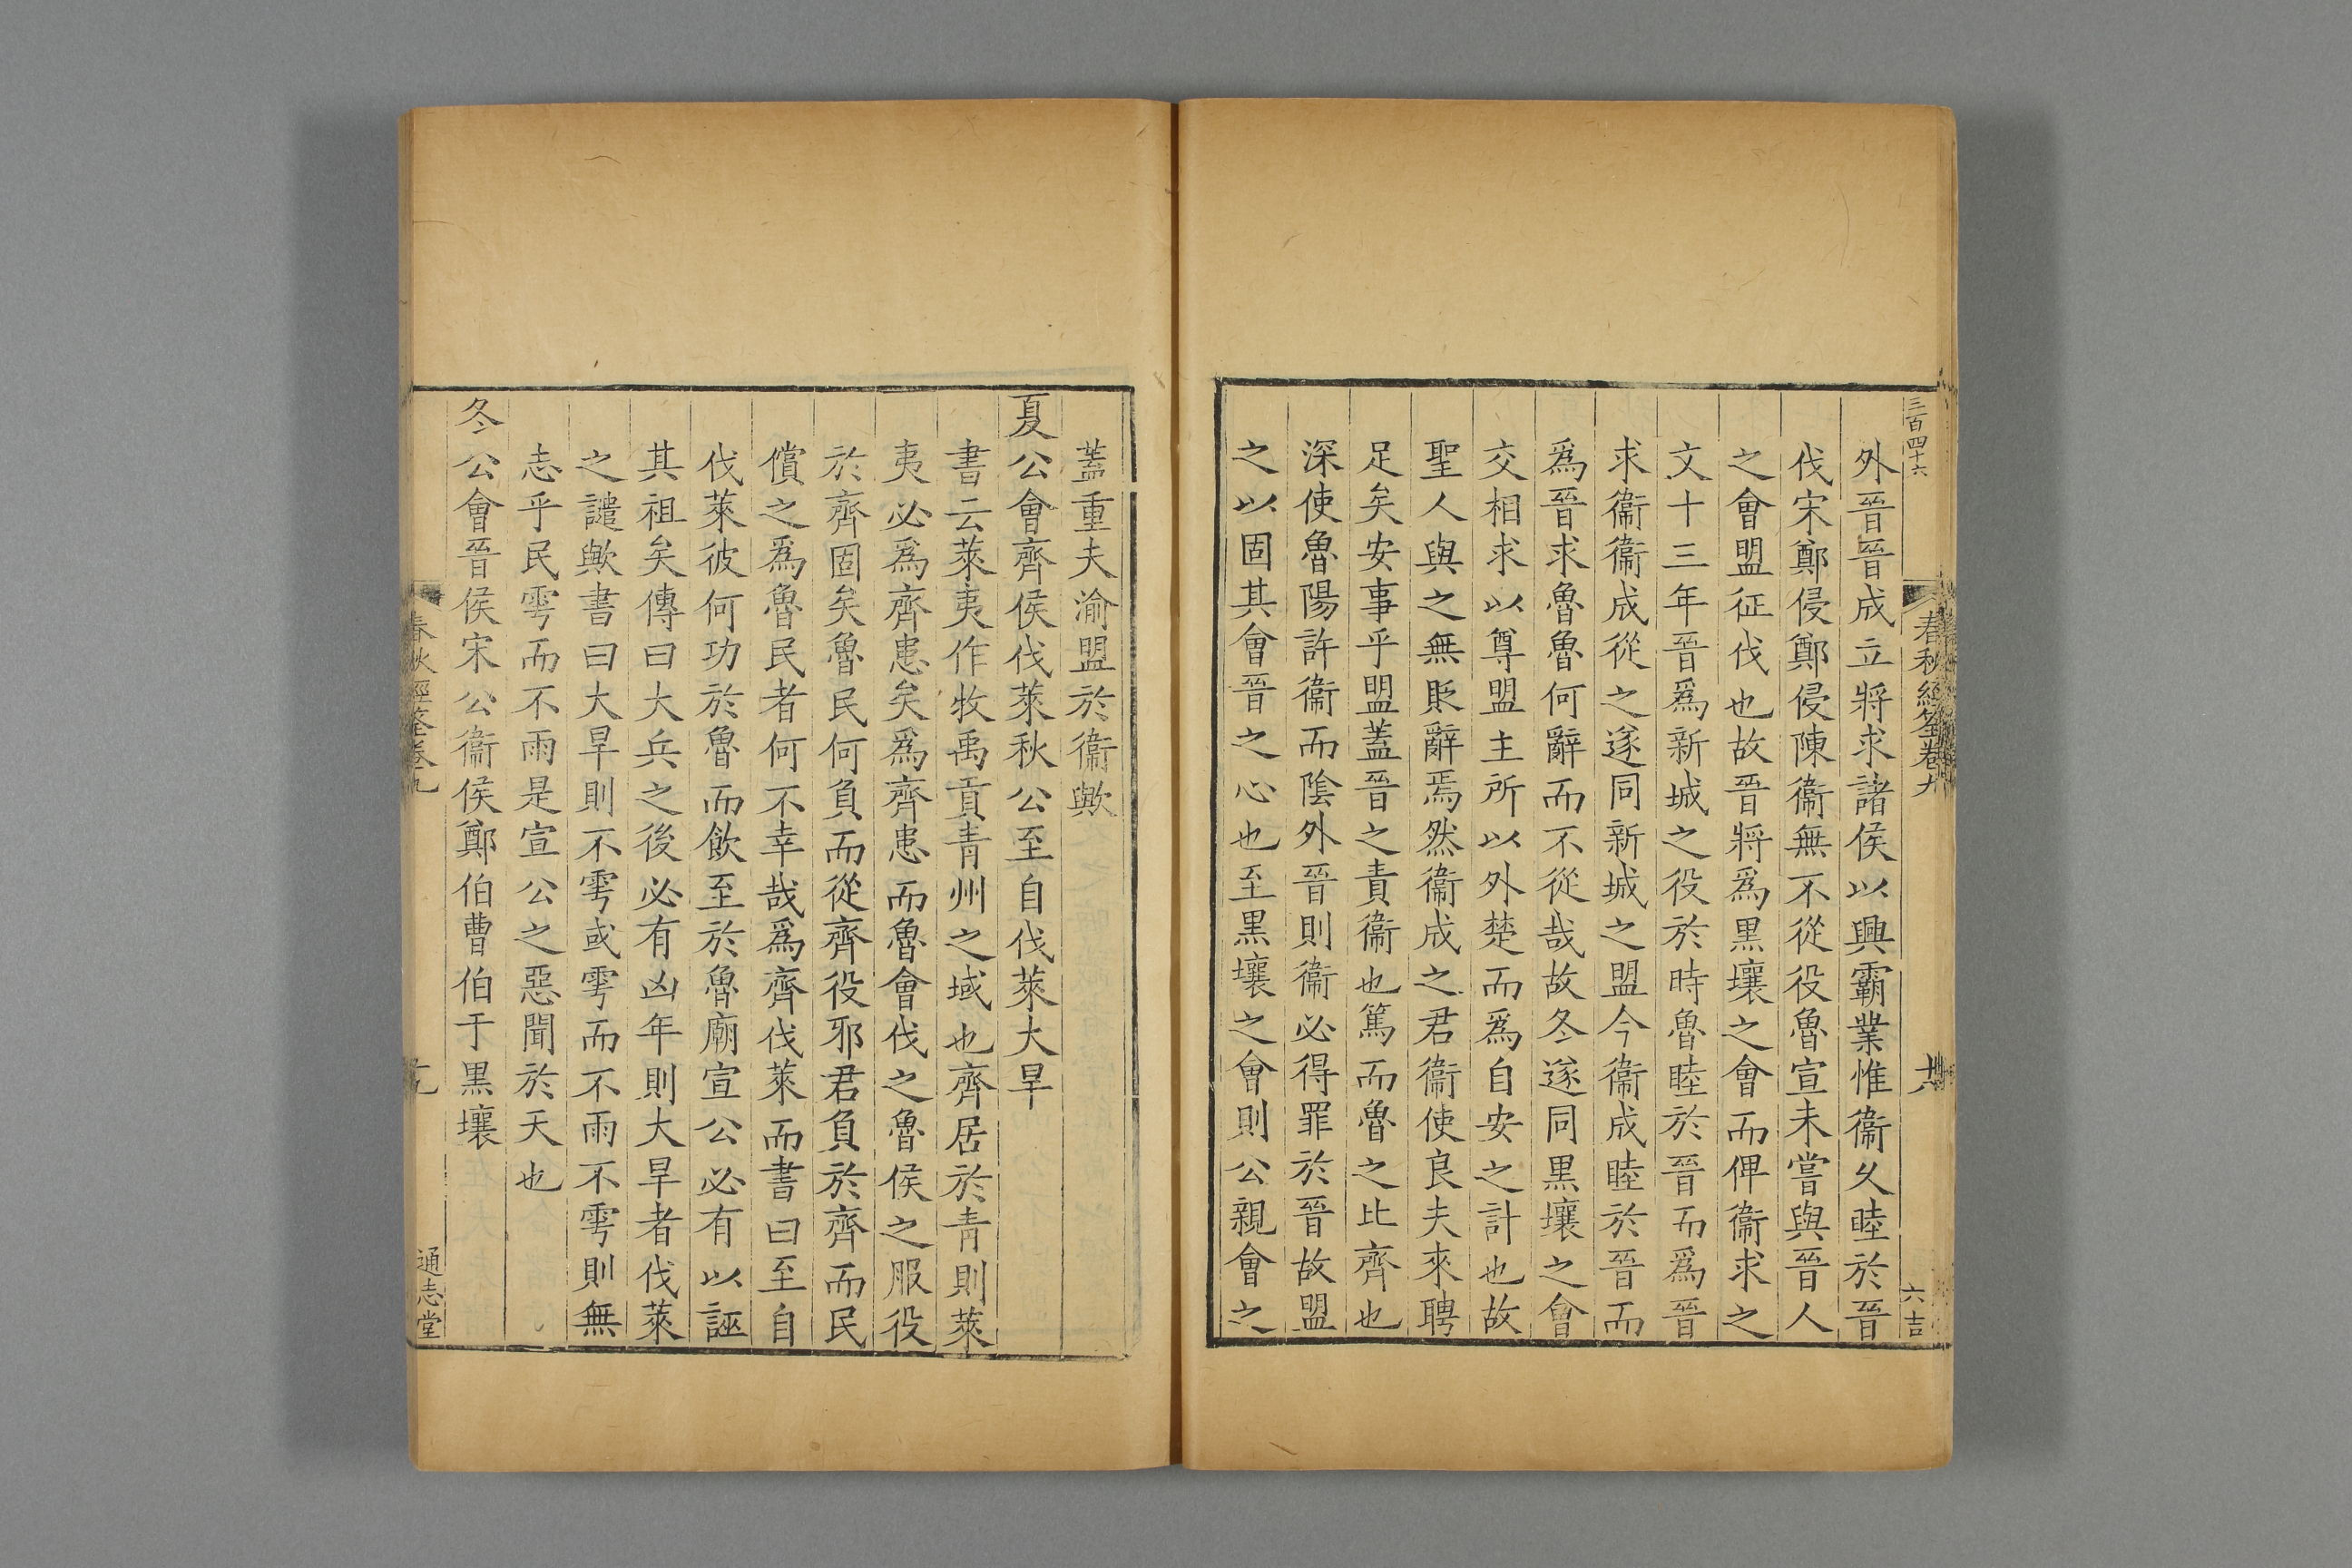 三百四十六
春秋經筌卷九
六吉
外晉晉成立將求諸侯以興霸業惟衞久睦於晉
伐宋鄭侵鄭侵陳衞無不從役魯宣未嘗與晉人
之會盟征伐也故晉將爲黑壤之會而俾衞求之
文十三年晉爲新城之役於時魯睦於晉而爲晉
求衞衞成從之遂同新城之盟今衞成睦於晉而
爲晉求魯魯何辭而不從哉故冬遂同黑壤之會
交相求以尊盟主所以外楚而爲自安之計也故
聖人與之無貶辭焉然衞成之君衞使良夫來聘
足矣安事乎盟蓋晉之責衞也篤而魯之比齊也
深使魯陽許衞而陰外晉則衞必得罪於晉故盟
之以固其會晉之心也至黑壤之會則公親會之
蓋重夫渝盟於衞歟
夏公會齊侯伐萊秋公至自伐萊大旱
書云萊夷作牧禹貢青州之域也齊居於青則萊
夷必爲齊患矣爲齊患而魯會伐之魯侯之服役
於齊固矣魯民何負而從齊役邪君負於齊而民
償之爲魯民者何不幸哉爲齊伐萊而書曰至自
伐萊彼何功於魯而飮至於魯廟宣公必有以誣
其祖矣傳曰大兵之後必有凶年則大旱者伐萊
之譴歟書曰大旱則不雩或雩而不雨不雩則無
志乎民雩而不雨是宣公之惡聞於天也
冬公會晉侯宋公衞侯鄭伯曹伯于黑壤
春秋經筌卷九
通志堂